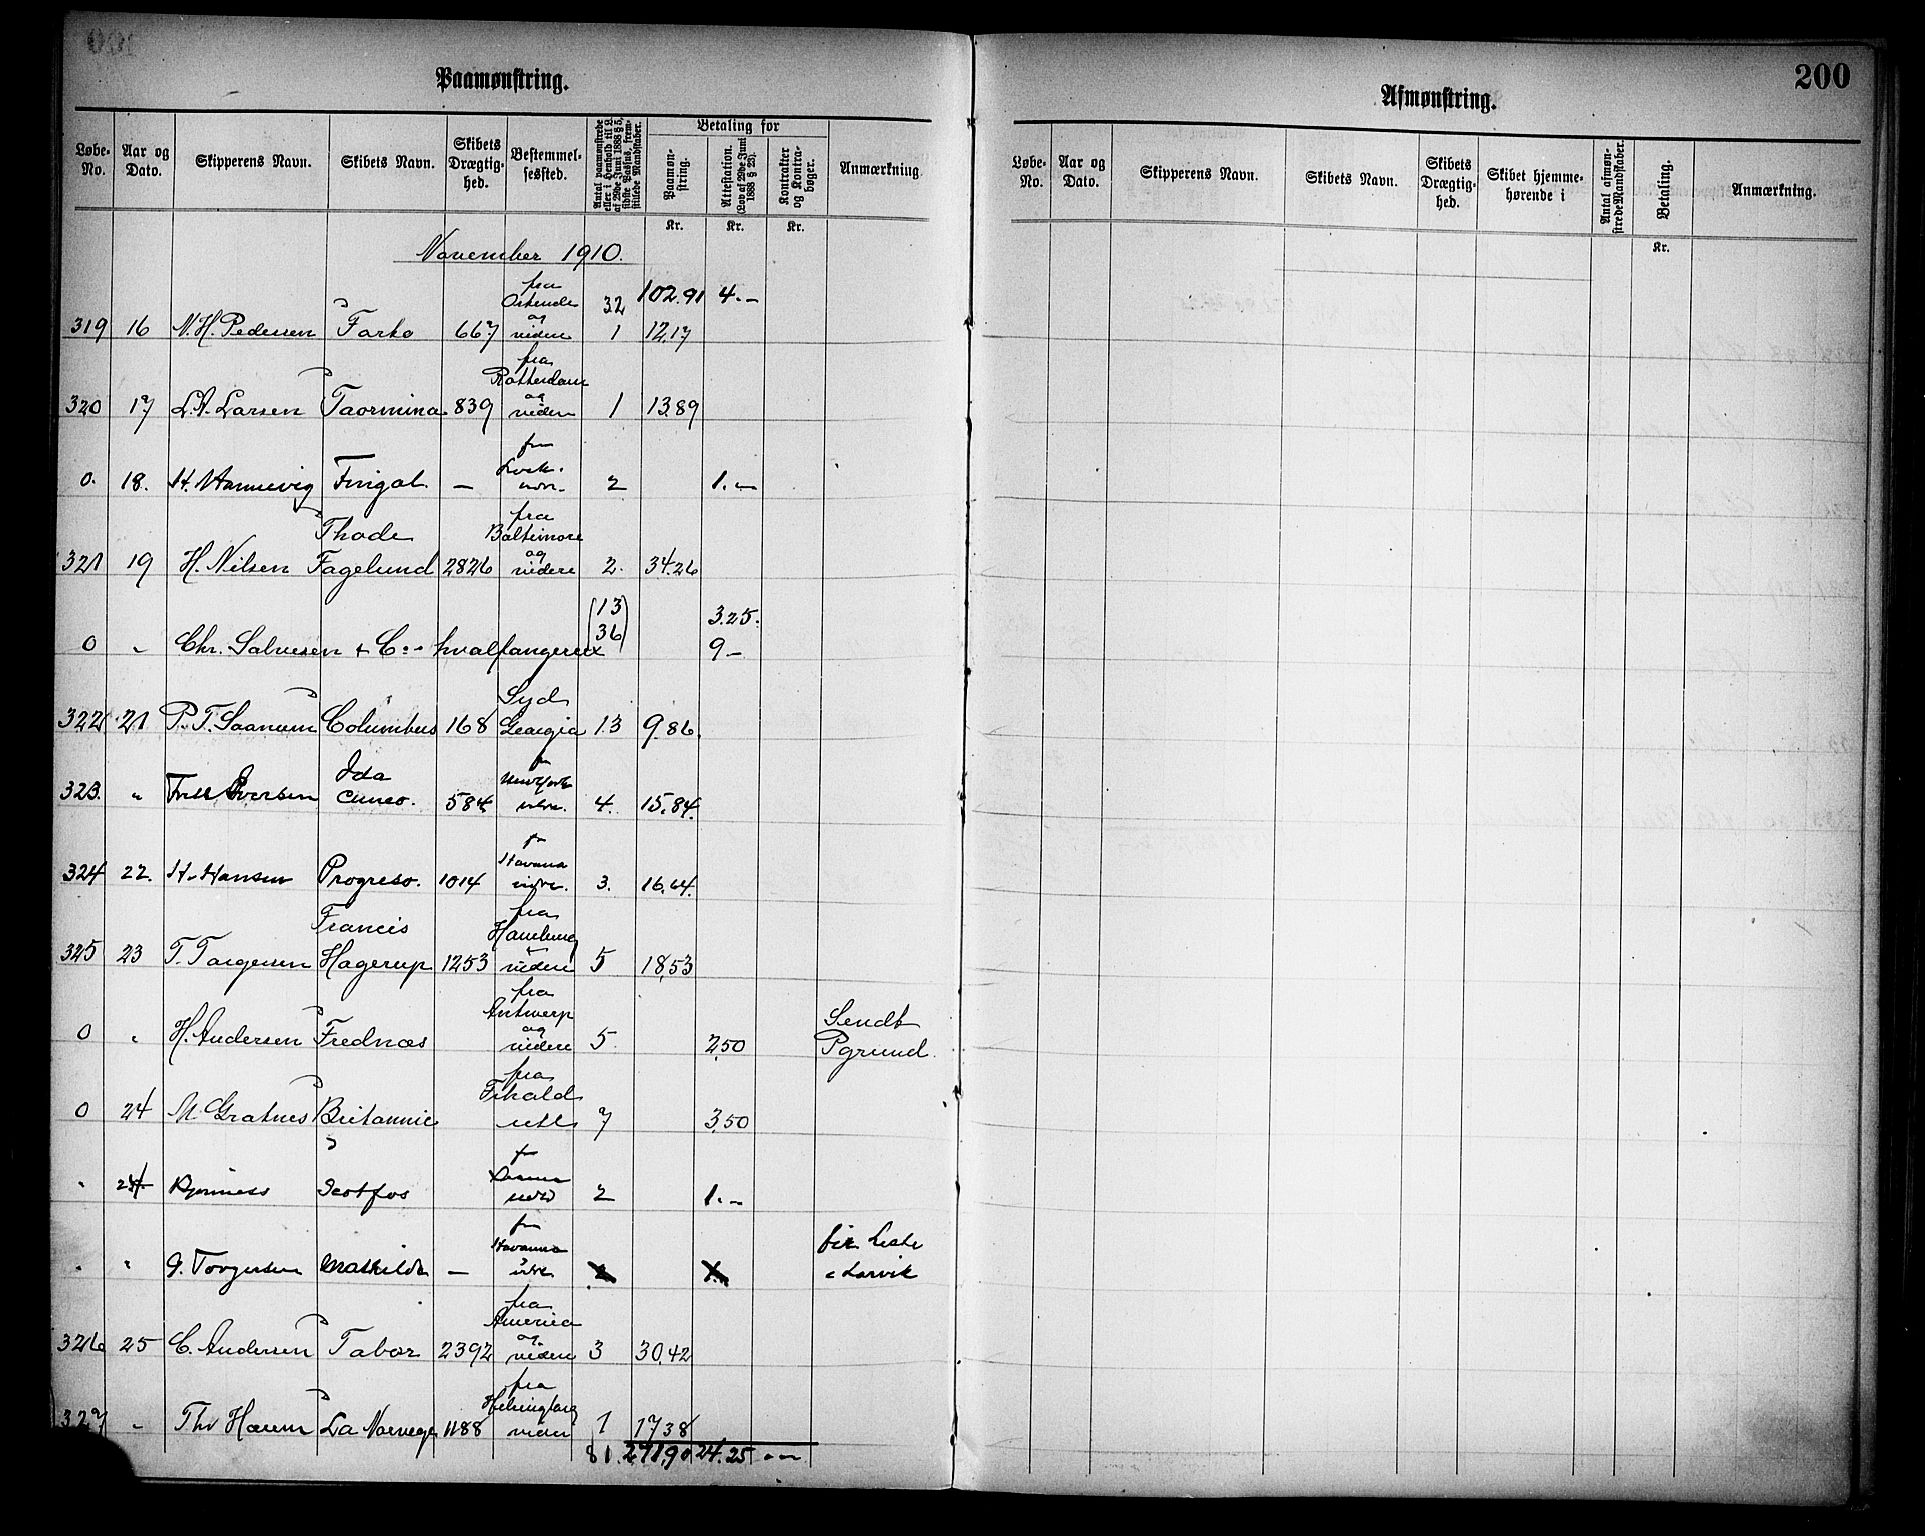 Paamønstring.
Løbe-No. Aar og Dato. Skipperens Navn. Skibets Navn. Skibets Drægtighed. Bestemmelsessted. Antal paamønstrede eller i Henhold til L. af 29de Juni 1888 § 5, sidste Passus, fremstillede Mandskaber. Betaling for Paamønstring. Attestation. (Lov af 29de Juni 1888 § 23). Kontrakter og Kontrabøger. Anmærkning.
Kr. Kr. Kr.
November 1910.
102.91 4.-
319 16 N. H. Pedersen Farko 667 fra Ostende og videre 32 1 12,17
320 17 L. A. Larsen Taormina 839 fra Rotterdam og videre 1 13.89
0. 18. H. Hannevig Fingal — 2 1.-
321 19 H. Nilsen Thode Fagelund 2826 fra Baltimore og videre 2. 34.26
0 " Chr. Salvesen & Co - hvalfangere (13 36) 3.25. 9.-
322 21 P. T. Saanum Columbus 168 Syd Georgia 13 9.86.
323. " Iversen Ida Cuneo. 584 f New York 4. 15.84.
324 22. H. Hansen Progreso. 1014 f Havana 3. 16.64.
325 23 T. Torgersen Francis Hagerup 1253 fra Hamburg videre 5 18,53
0 " H. Andersen Frednæs fra Antwerp og videre 5 2,50 Sendt Pgrund.
0 24 M. Gratnes Britannic fra Fr.hald 7 3,50
" 24 Scotfos 2 1.-
" " G. Torgersen Mathilde — Havanna Larvik
326 25 C. Andersen Tabor 2392 fra America og videre 3 30,42
327 " Thv Haeem La Norvege 1188 fra Helsingborg videre 1 17 38
81. 271,90 24.25
Afmønstring.
200
Løbe-No. Aar og Dato. Skipperens Navn. Skibets Navn. Skibets Drægtighed. Skibet hjemmehørende i Antal afmønstrede Mandskaber. Betaling. Anmærkning.
Kr.